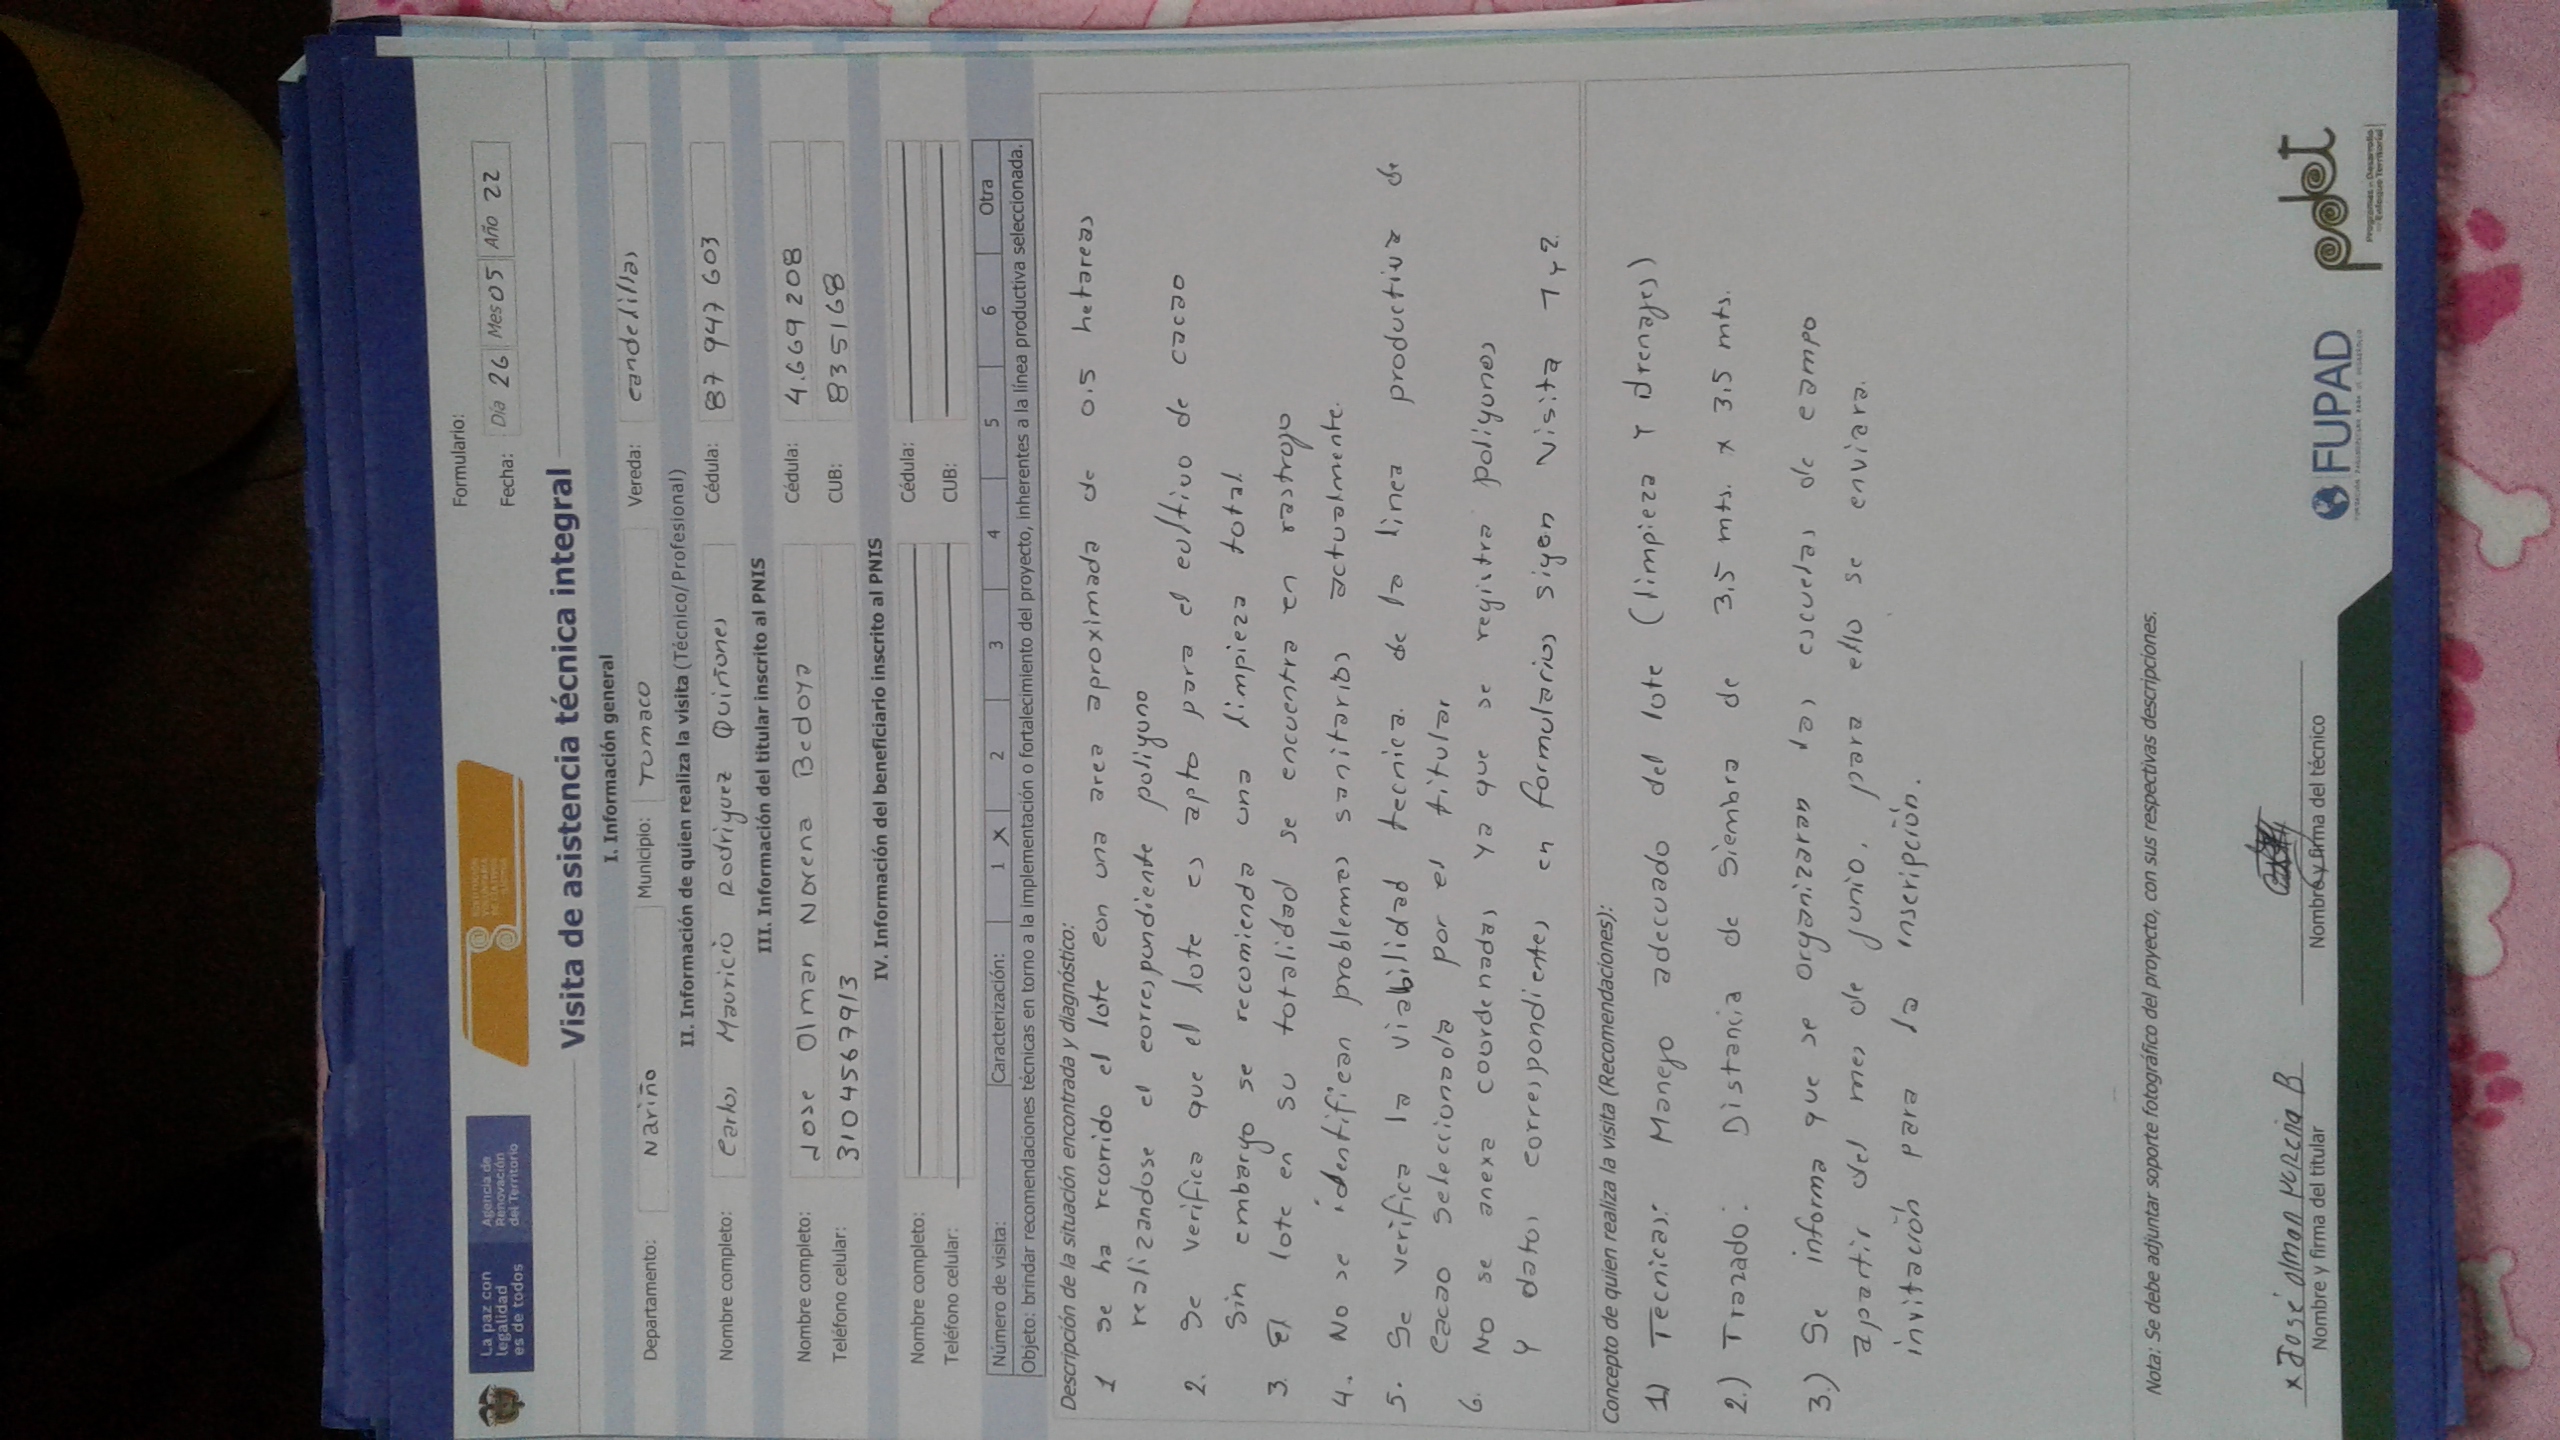 La paz con
legalidad
es de todos
Agencia de
Renovación
del Territorio
Formulario:
Fecha: Día 26 Mes 05 Año 22
Visita de asistencia técnica integral
I. Información general
Departamento: Nariño Municipio: Tumaco Vereda: candelillas
II. Información de quien realiza la visita (Técnico/Profesional)
Nombre completo: Carlos Mauricio Rodriguez Quiñones Cédula: 87 947 603
III. Información del titular inscrito al PNIS
Nombre completo: Jose Olman Norena Bedoya Cédula: 4.669 208
Teléfono celular: 3104567913 CUB: 835168
IV. Información del beneficiario inscrito al PNIS
Nombre completo: Cédula:
Teléfono celular: CUB:
Número de visita: Caracterización: 1 X 2 3 4 5 6 Otra
Objeto: brindar recomendaciones técnicas en torno a la implementación o fortalecimiento del proyecto, inherentes a la línea productiva seleccionada.
Descripción de la situación encontrada y diagnóstico:
1 se ha recorrido el lote con una area aproximada de 0.5 hetareas
realizandose el correspondiente poligono
2. Se verifica que el lote es apto para el cultivo de cacao
Sin embargo se recomienda una limpieza total.
3. El lote en su totalidad se encuentra en rastrojo
4. No se identifican problemas sanitarios actualmente.
5. Se verifica la viabilidad tecnica de la linea productiva de
cacao seleccionada por el titular
6. No se anexa coordenadas ya que se registra poligonos
y datos correspondientes en formularios sigen visita 1 y 2.
Concepto de quien realiza la visita (Recomendaciones):
1) Tecnicas: Manejo adecuado del lote (limpieza y drenajes)
2.) Trazado: Distancia de siembra de 3,5 mts. x 3,5 mts.
3.) Se informa que se organizaran las escuelas de campo
apartir del mes de junio, para ello se enviara
invitación para la inscripción.
Nota: Se debe adjuntar soporte fotográfico del proyecto, con sus respectivas descripciones.
x José olman B
Nombre y firma del titular
Nombre y firma del técnico
FUPAD
pdet
Programas de Desarrollo
con Enfoque Territorial